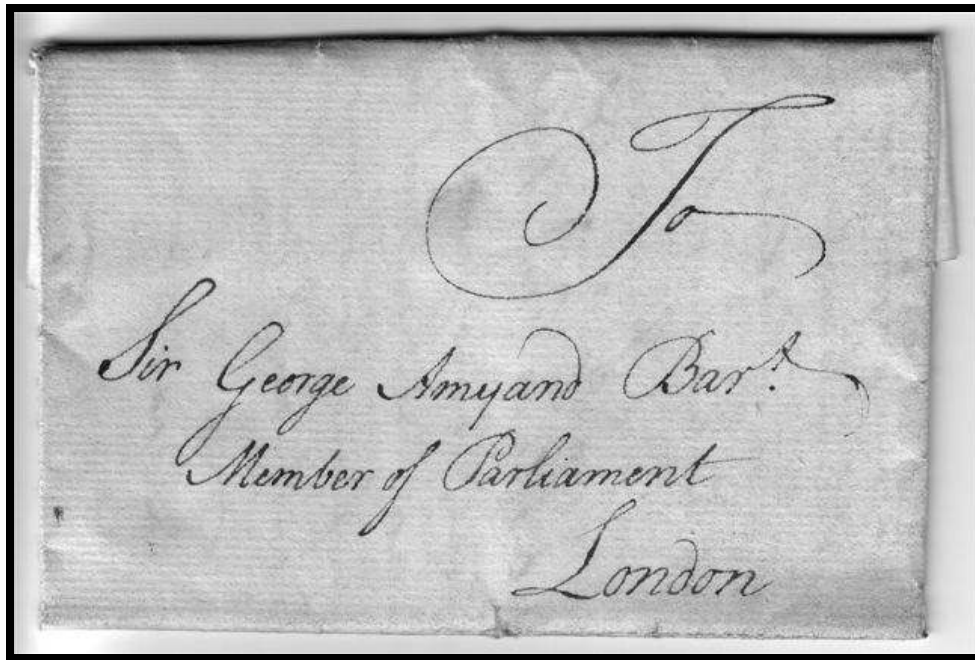 To
Sir George Amyand Bar.t
Member of Parliament
London